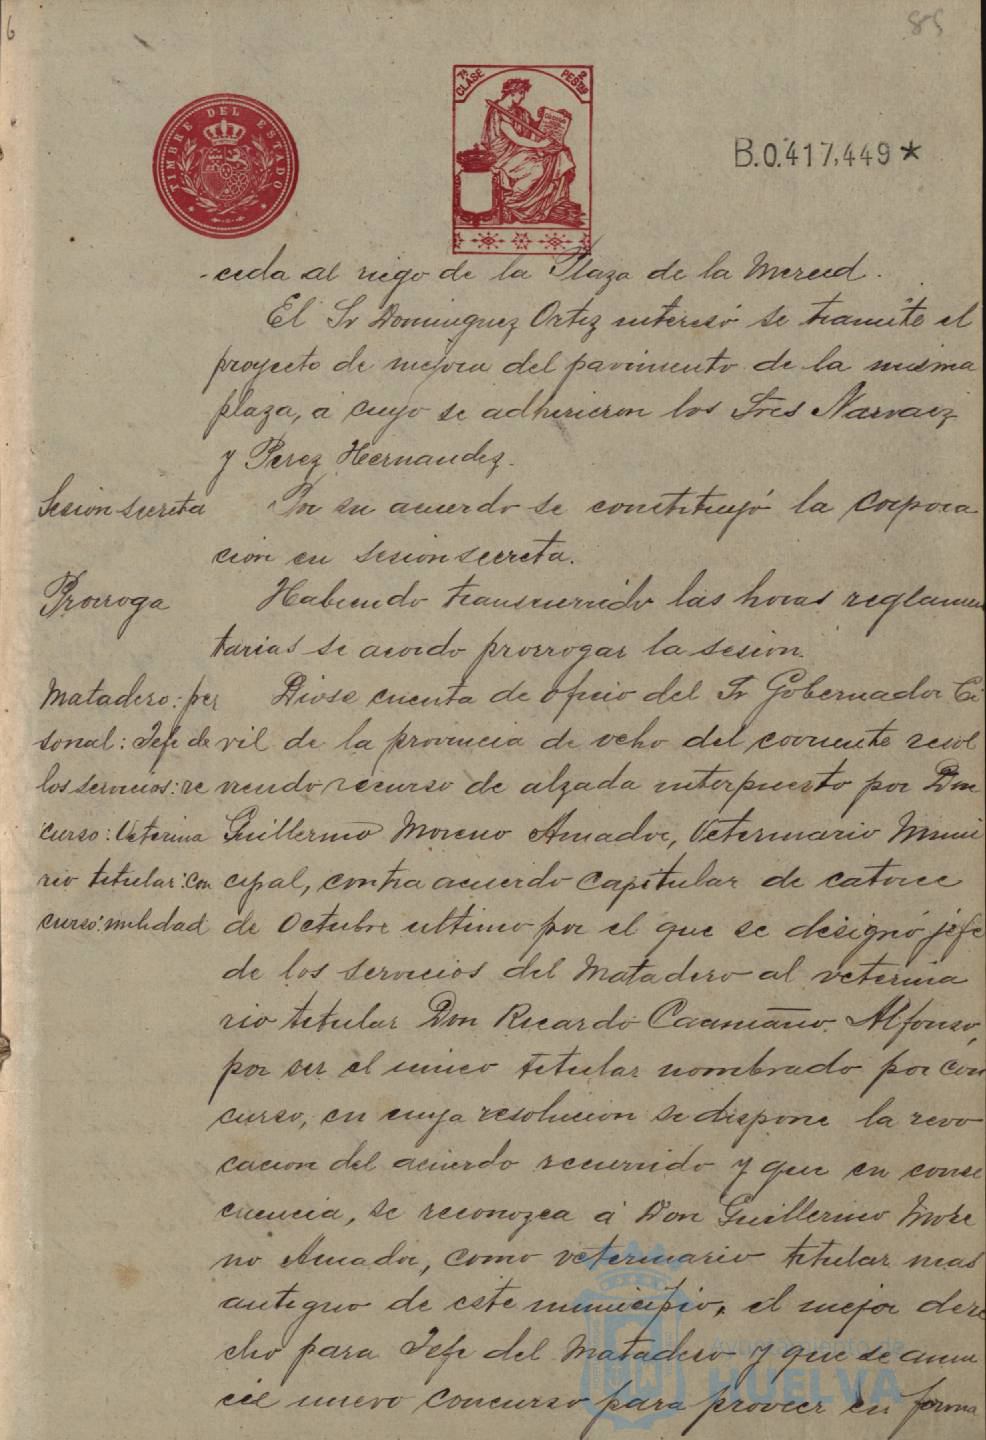 6
85
TIMBRE DEL ESTADO
7ª CLASE 2 PESTAS
B.0.417,449*
-ceda al riego de la Plaza de la Merced.
El Sr Dominguez Ortiz interesó se tramite el
proyecto de mejora del pavimento de la misma
plaza, á cuyo se adhirieron los Sres Narvaez
y Perez Hernandez.
Sesion secreta
Por su acuerdo se constituyó la corpora
cion en sesion secreta.
Prorroga
Habiendo transcurrido las horas reglamen
tarias se acordo prorrogar la sesion.
Matadero: per
sonal: Jefe de
los servicios: re
curso: Veterina
rio titular: con
curso: nulidad
Diose cuenta de oficio del Sr Gobernador Ci
vil de la provincia de ocho del corriente resol
viendo recurso de alzada interpuesto por Don
Guillermo Moreno Amador, Veterinario Muni
cipal, contra acuerdo capitular de catorce
de Octubre ultimo por el que se designó jefe
de los servicios del Matadero al veterina
rio titular Don Ricardo Caamaño Alfonso,
por ser el unico titular nombrado por con
curso, en cuya resolucion se dispone la revo
cacion del acuerdo recurrido y que en conse
cuencia, se reconozca á Don Guillermo More
no Amador, como veterinario titular mas
antiguo de este municipio, el mejor dere
cho para Jefe del Matadero y que se anun
cie nuevo concurso para proveer en forma
Ayuntamiento de
HUELVA